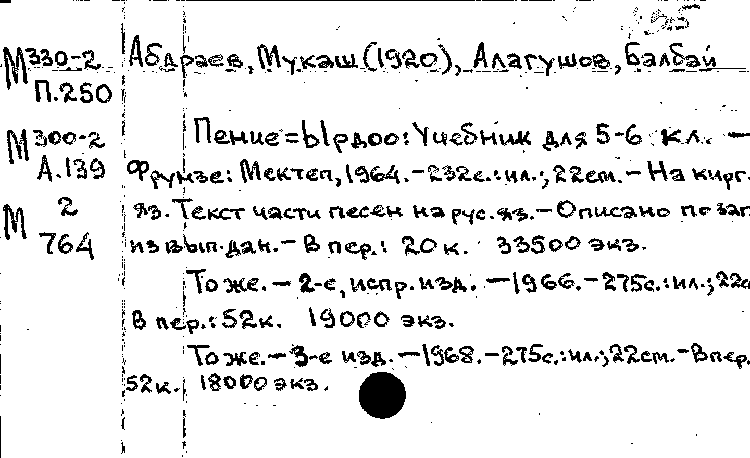 М 330-2 Абдраев, Мукаш (1920), Алагушов, Балбай
П.250
М 300-2 Пение=Ырдоо: Учебник для 5-6 кл. —
А.139 Фрунзе: Мектеп, 1964.-232с.:ил.; 22см. - На кирг.
М 2 яз. Текст части песен на рус. яз. - Описано по заг
764 из вып. дан. - В пер.: 20к. 33500 экз.
То же. - 2-е, испр. изд. - 1966. - 275с.:ил.; 22с
В пер.: 52к. 19000 экз.
То же. - 3-е изд. - 1968. - 275с.:ил.; 22см. - В пер.
52к. 18000 экз.